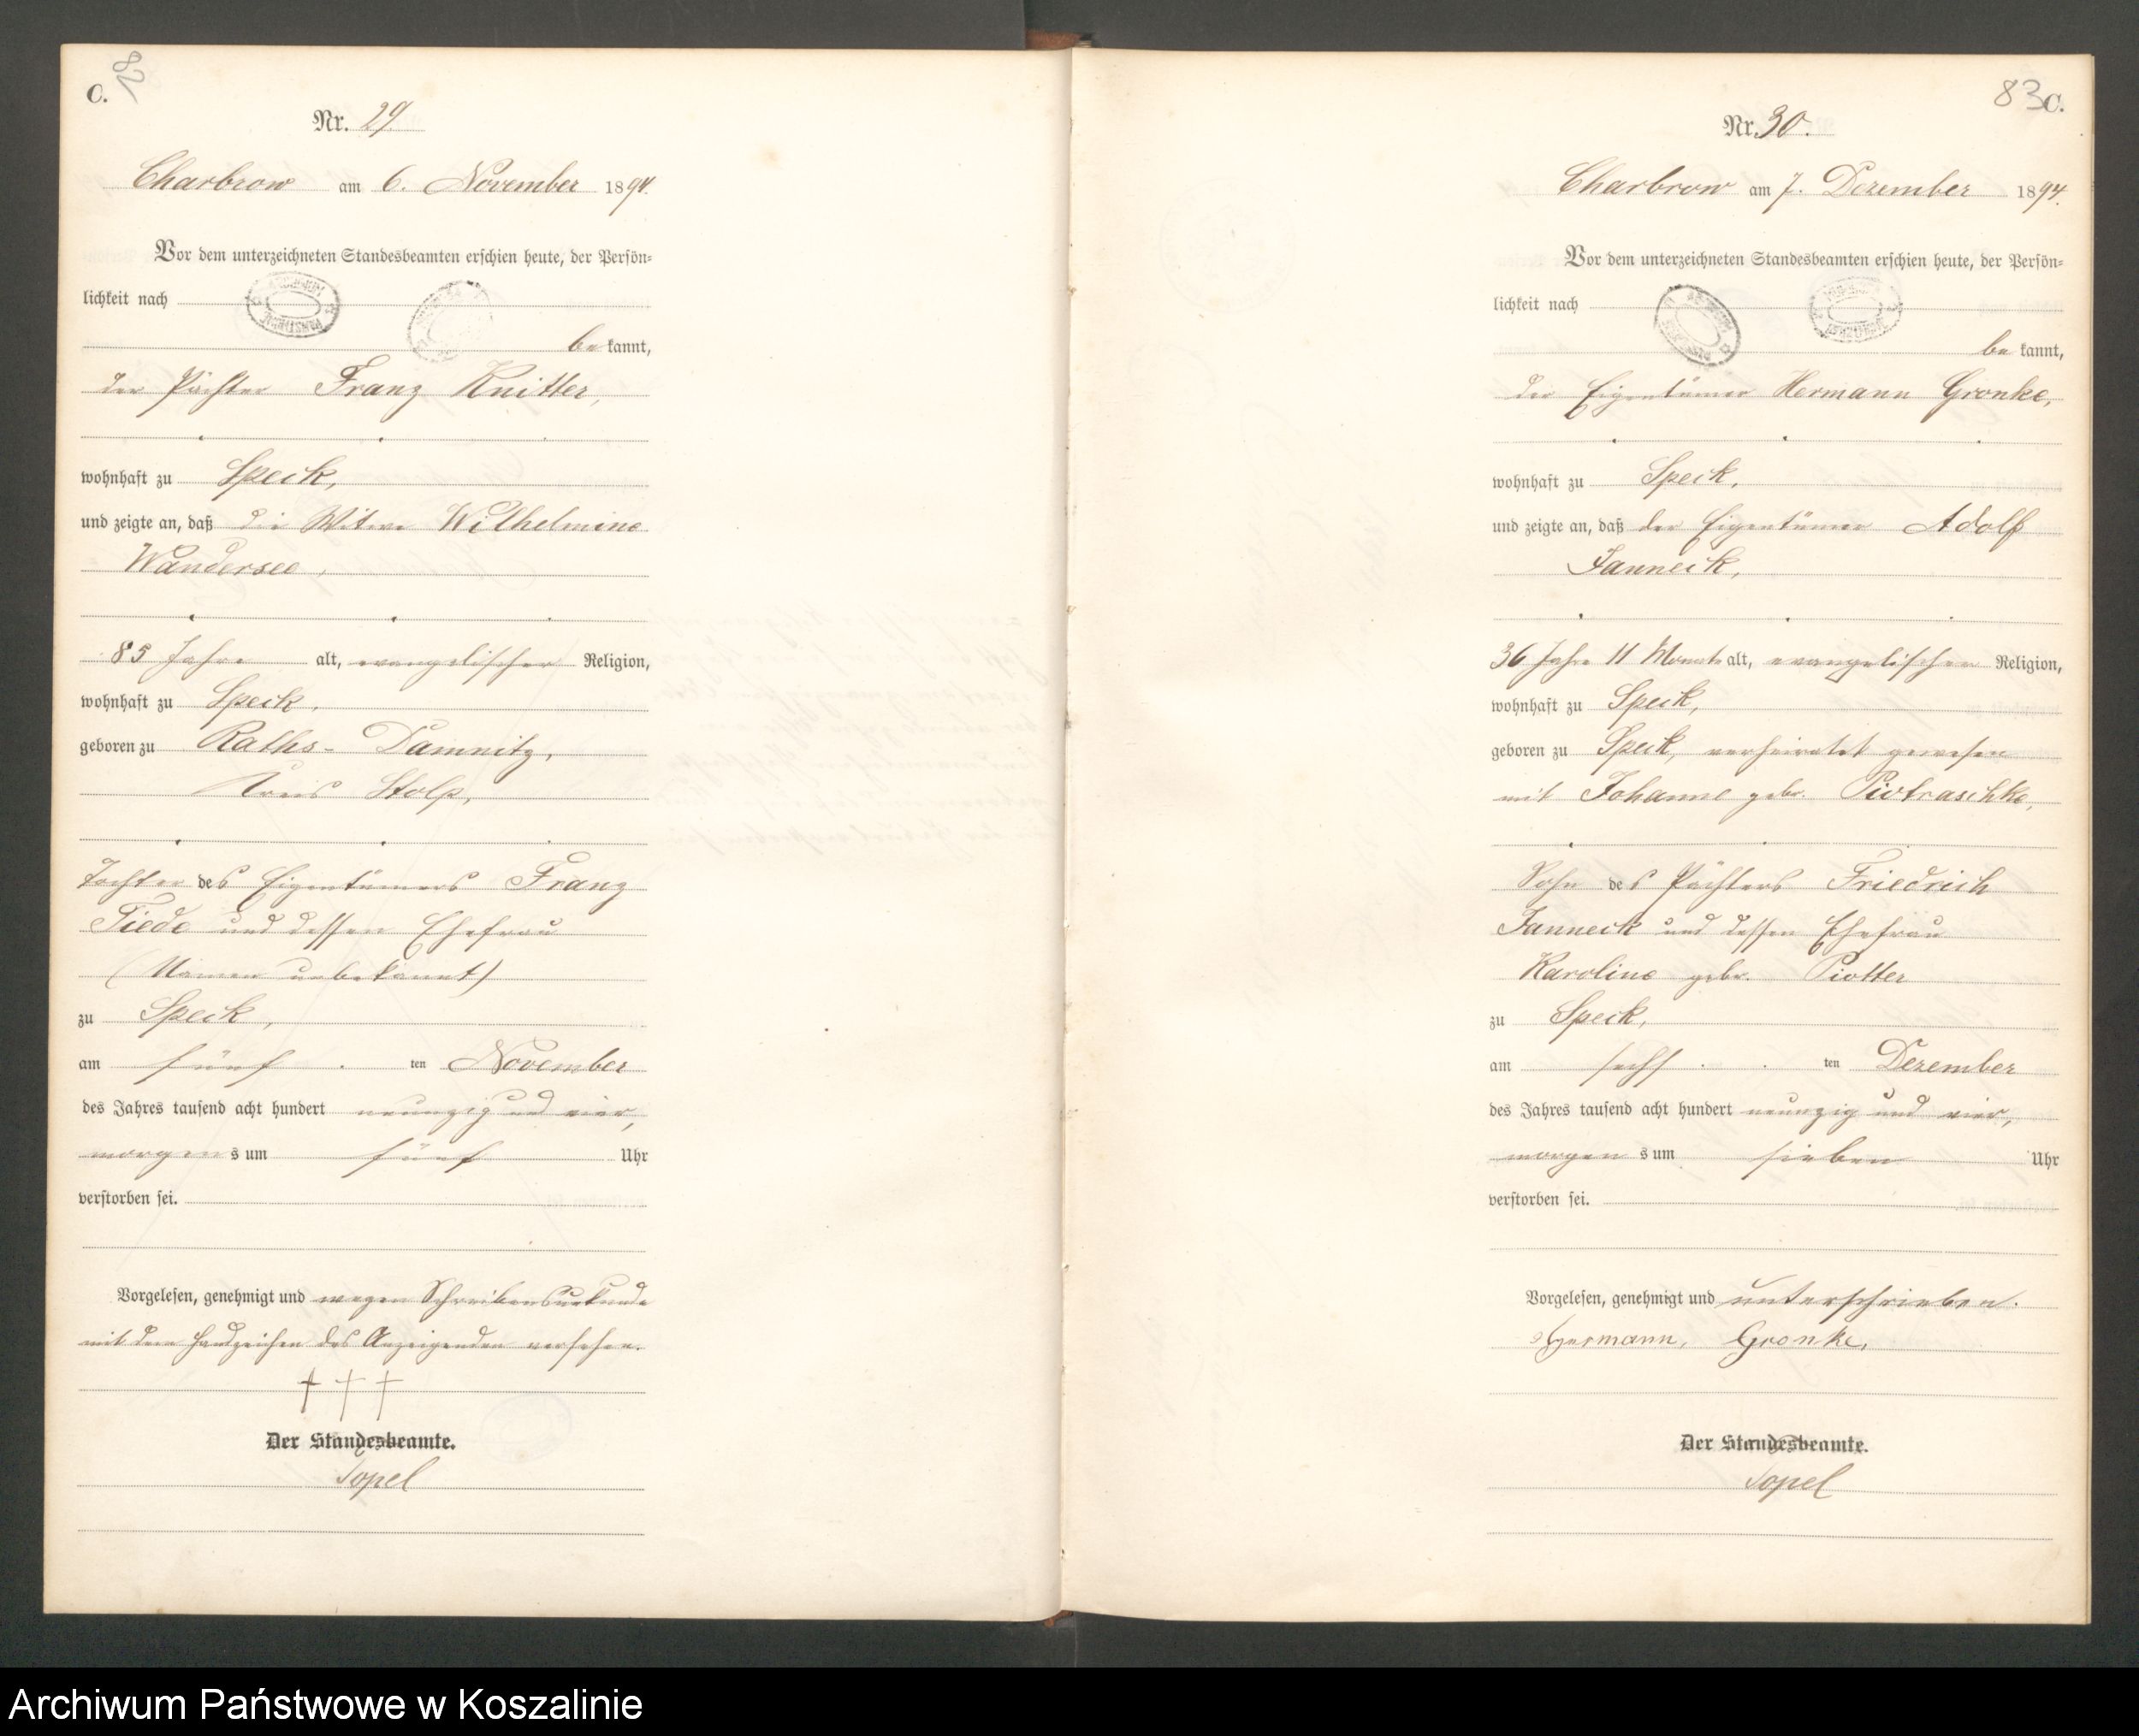 C.
82
Nr. 29
Charbrow am 6. November 1894.
Vor dem unterzeichneten Standesbeamten erschien heute, der Persön-
lichkeit nach
bekannt,
der Pächter Franz Knitter,
wohnhaft zu Speck,
und zeigte an, daß die Witwe Wilhelmine
Wandersee,
85 Jahre alt, evangelischer Religion,
wohnhaft zu Speck,
geboren zu Raths-Damnitz,
Kreis Stolp,
Tochter des Eigentümers Franz
Tiede und dessen Ehefrau
(Namen unbekannt)
zu Speck,
am fünf ten November
des Jahres tausend acht hundert neunzig und vier,
morgens um fünf Uhr
verstorben sei.
Vorgelesen, genehmigt und wegen Schreibensunkunde
mit dem Handzeichen des Anzeigenden versehen.
† † †
Der Standesbeamte.
Topel
83 C.
Nr. 30.
Charbrow am 7. Dezember 1894.
Vor dem unterzeichneten Standesbeamten erschien heute, der Persön-
lichkeit nach
bekannt,
der Eigentümer Hermann Gronke,
wohnhaft zu Speck,
und zeigte an, daß der Eigentümer Adolf
Janneck,
36 Jahre 11 Monate alt, evangelischer Religion,
wohnhaft zu Speck,
geboren zu Speck, verheiratet gewesen
mit Johanne gebr. Piotraschke,
Sohn des Pächters Friedrich
Janneck und dessen Ehefrau
Karoline gebr. Piotter
zu Speck,
am sechs ten Dezember
des Jahres tausend acht hundert neunzig und vier,
morgens um sieben Uhr
verstorben sei.
Vorgelesen, genehmigt und unterschrieben.
Hermann, Gronke,
Der Standesbeamte.
Topel
Archiwum Państwowe w Koszalinie